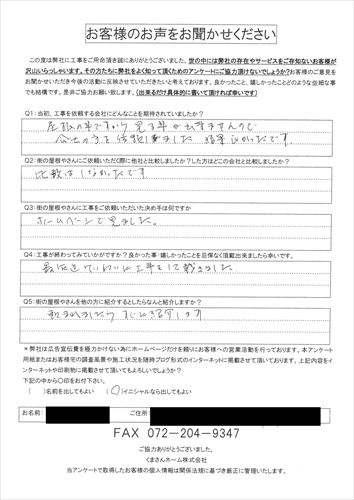 お客様のお声をお聞かせください
この度は弊社に工事をご用命頂き誠にありがとうございました。世の中には弊社の存在やサービスをご存知ないお客様が
沢山いらっしゃいます。その方たちに弊社をよく知って頂くためのアンケートにご協力頂けないでしょうか?お客様のご意見を
お聞かせいただき今後の活動に反映させていただきたいと考えております。良かったこと、嬉しかったことどのような些細な事
でも結構です。是非ご協力お願い致します。(出来るだけ具体的に書いて頂ければ幸いです)
Q1:当初、工事を依頼する会社にどんなことを期待されていましたか?
屋根の事ですから見る事が出来ませんので
会社の方を信頼し ました 結果 よかったです。
Q2:街の屋根やさんにご依頼いただく際に他社と比較しましたか?した方はどこの会社と比較しましたか?
比較はしなかったです
Q3:街の屋根やさんに工事をご依頼いただいた決め手は何ですか
ホームページで見ました。
Q4:工事が終わってみていかがですか?良かった事・嬉しかったことを忌憚なく頂戴出来ましたら幸いです。
ていねいに工事をして戴きました
Q5:街の屋根やさんを他の方に紹介するとしたらなんと紹介しますか?
紹介します
*弊社は広告宣伝費を極力かけない為にホームページだけを頼りにお客様への営業活動を行っております。本アンケート
用紙またはお客様宅の調査風景や施工状況を随時ブログ形式のインターネットに掲載させて頂いております。上記内容をイ
ンターネットや印刷物に掲載させて頂いてもよろしいでしょうか?
下記の中から〇印をお付下さい。
( )名前を出してもよい (〇)イニシャルなら出してもよい
お名前: ご住所:
FAX 072-204-9347
ご協力ありがとうございました。
くまさんホーム株式会社
当アンケートで取得したお客様の個人情報は関係法規に基づき厳正に管理いたします。